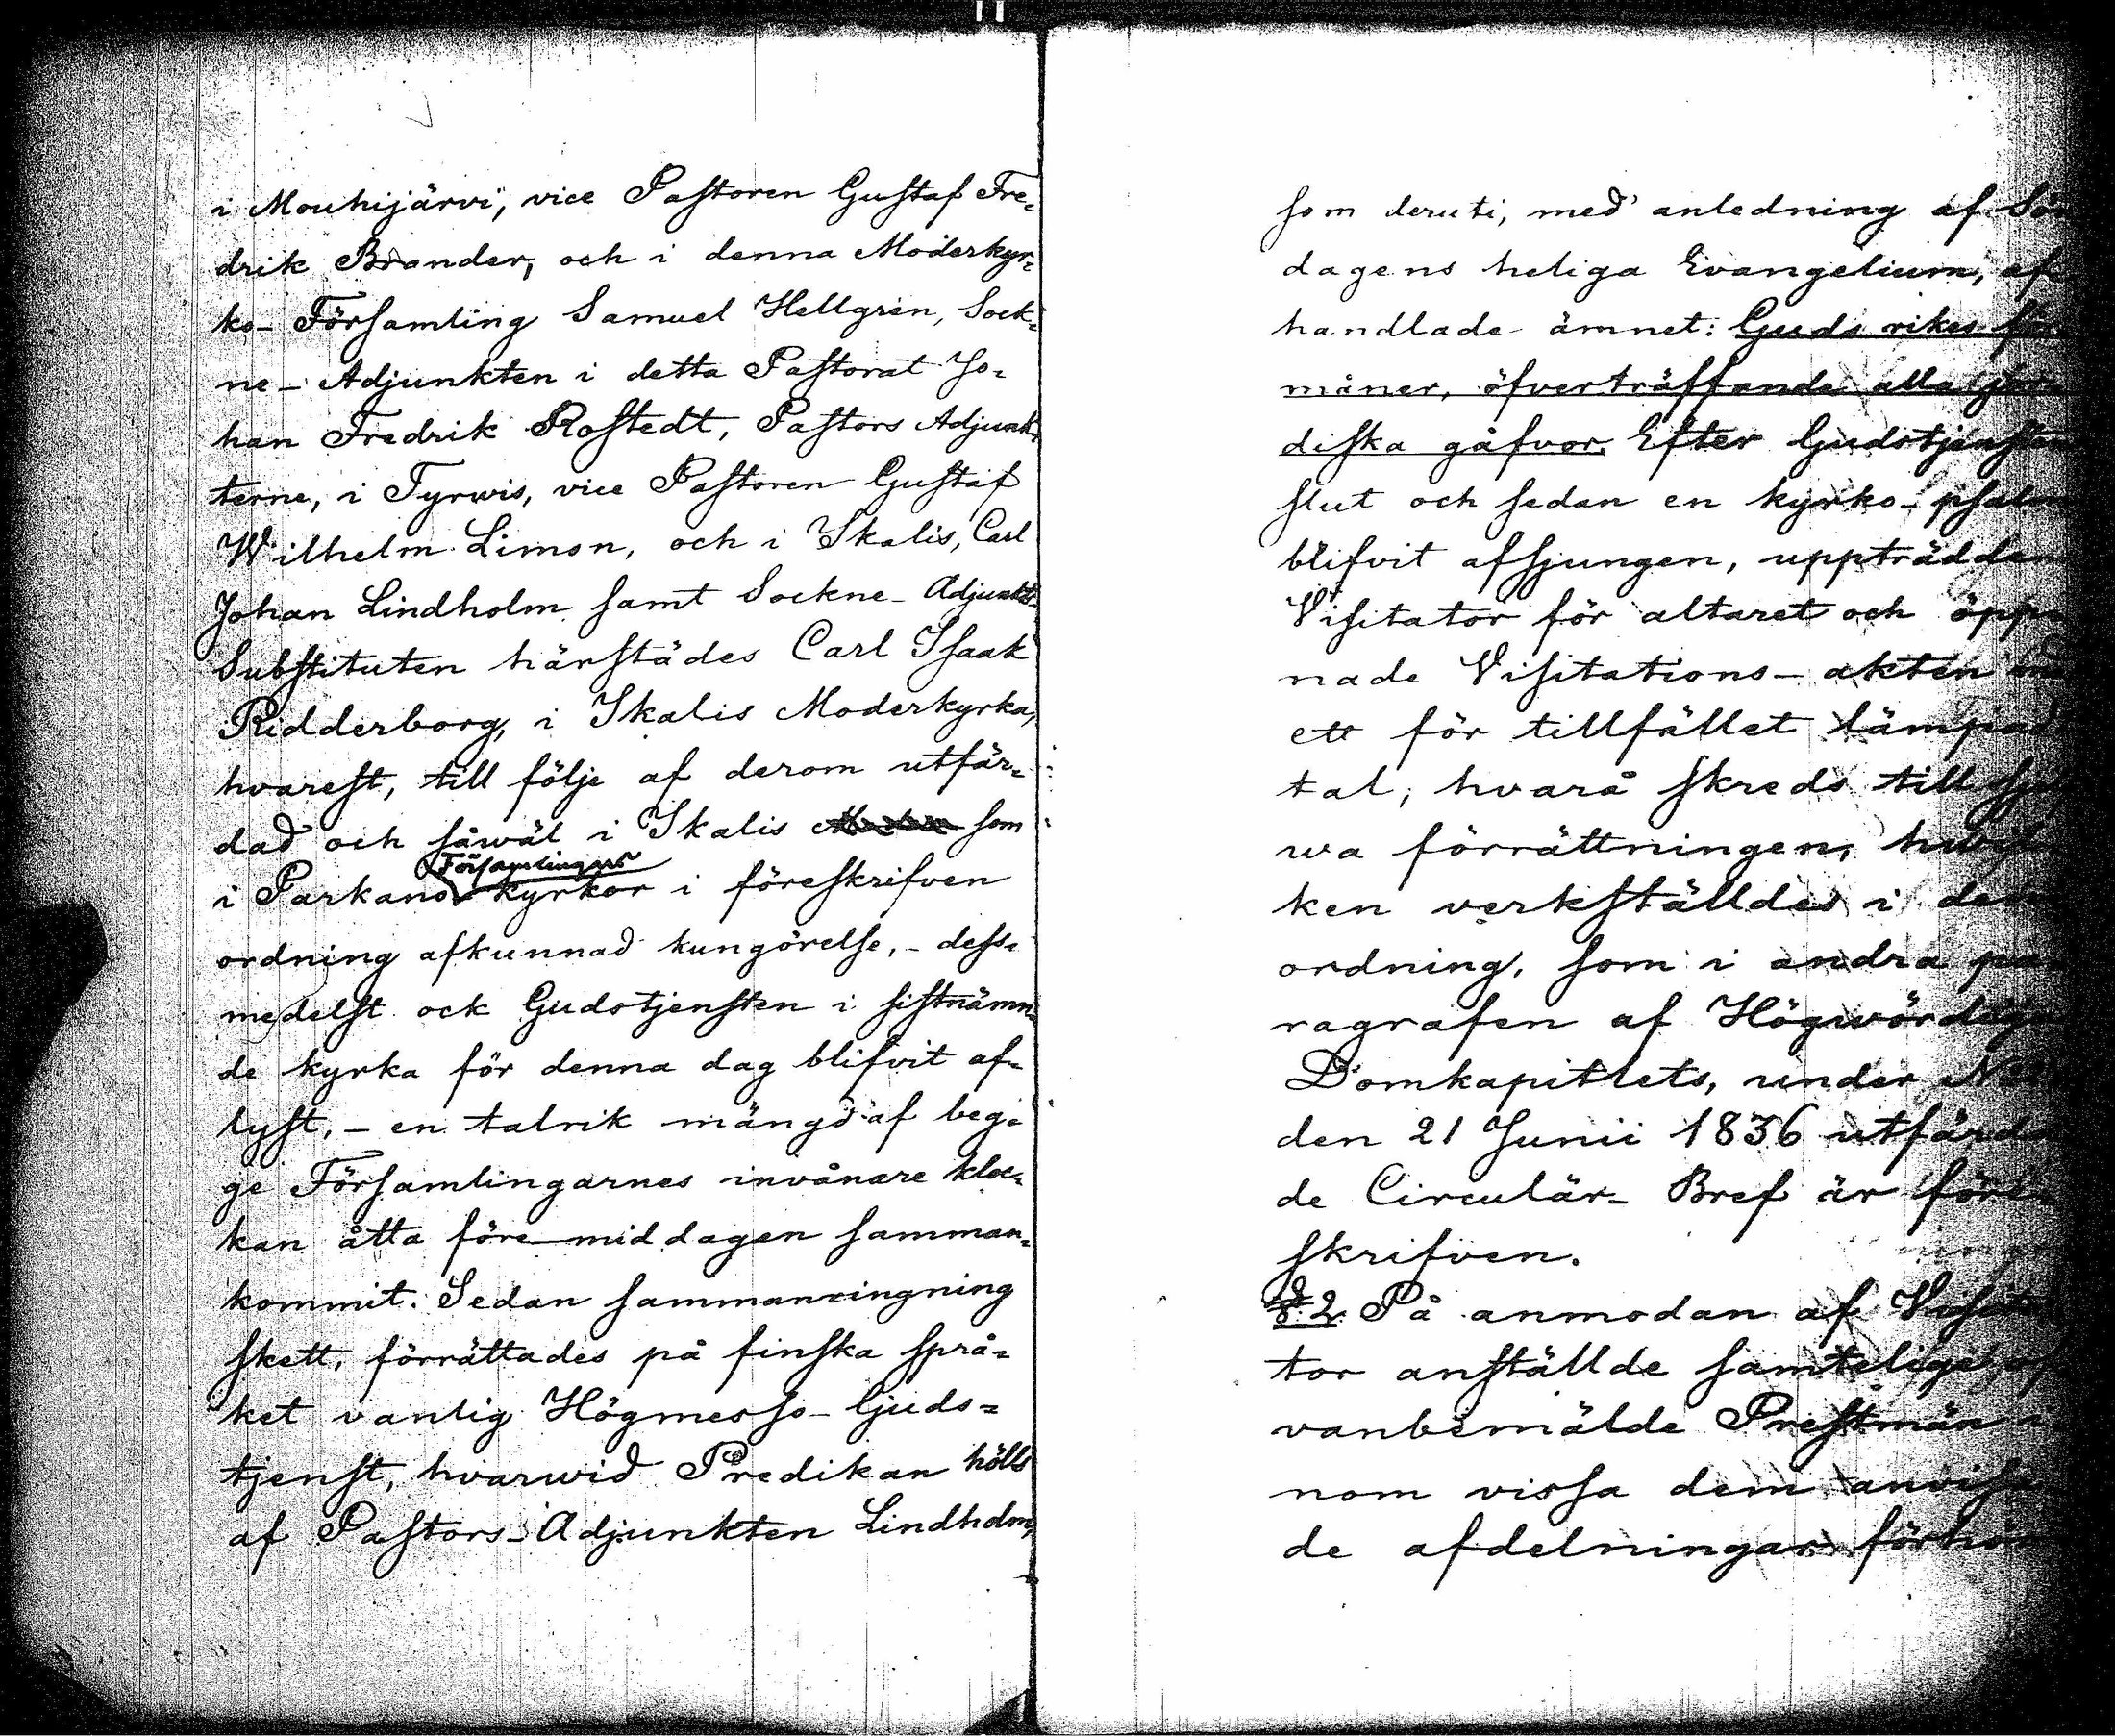 i Mouhijärvi, vice Pastoren Gustaf Fre=
drik Brander, och i denna Moderkyr=
ko-Församling Samuel Hellgren, Sock=
ne-Adjunkten i detta Pastorat Jo=
han Fredrik Rostedt, Pastors Adjunk=
terne, i Tyrwis, vice Pastoren Gustaf
Wilhelm Limon, och i Ikalis, Carl
Johan Lindholm samt Sockne-Adjunkts
Substituten härstädes Carl Isaak
Ridderborg, i Ikalis Moderkyrka,
hvarest, till följe af derom utfär=
dad och såwäl i Ikalis som
Församlingars
i Parkano kyrkor i föreskrifven
ordning afkunnad kungörelse, - dess=
medelst ock Gudstjensten i sistnämn=
de kyrka för denna dag blifvit af=
lyst, - en talrik mängd af beg=
ge Församlingarnes invånare kloc=
kan åtta före middagen samman=
kommit. Sedan sammanringning
skett, förrättades på finska språ=
ket vanlig Högmesso-Guds=
tjenst, hvarwid Predikan hölls
af Pastors-Adjunkten Lindholm,
som deruti, med anledning af Sön
dagens heliga Evangelium, af
handlade ämnet: Guds rikes för
måner, öfverträffande alla jor
diska gåfvor. Efter Gudstjensten
slut och sedan en kyrko-psalm
blifvit afsjungen, uppträdde
Visitator för altaret och öpp
nade Visitations-akten
ett för tillfället lämpad
tal, hvarå skreds till sjel
wa förrättningen, hwil
ken verkställdes i den
ordning, som i andra pa
ragrafen af Högwördig
Domkapitlets, under No
den 21 Junii 1836 utfärda
de Circulär-Bref är före
skrifven.
§ 2. På anmodan af Visita
tor anställde samtelige of
vanbemälde Prestmän
nom vissa dem anvisa
de afdelningar förhör